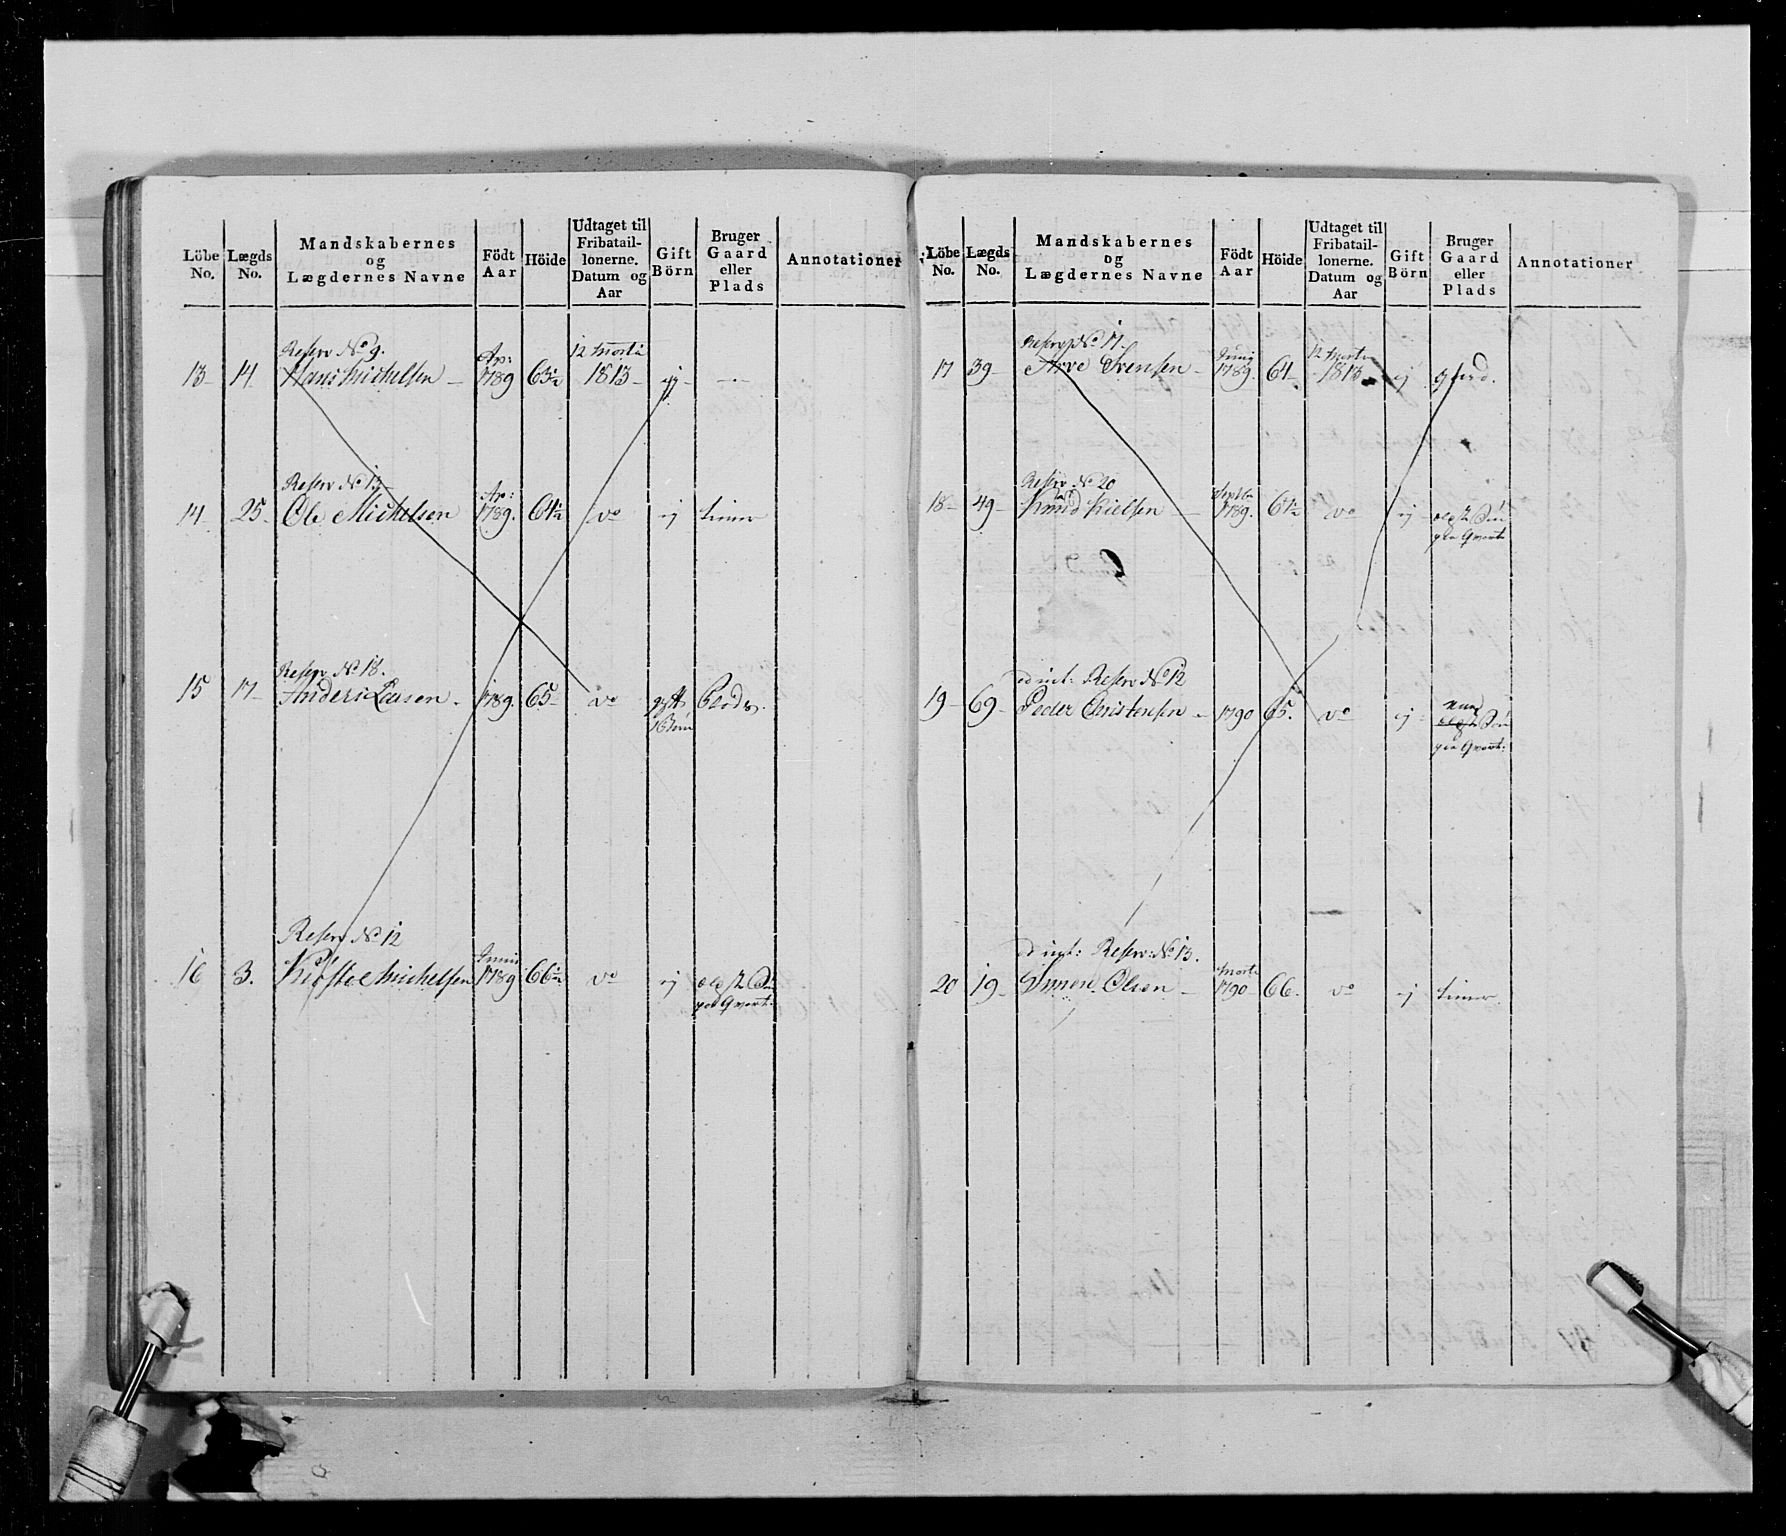 Löbe No. Lægds No. Mandskabernes og Lægdernes Navne Födt Aar Höide Udtaget til Fribatail-lonerne. Datum og Aar Gift Börn Bruger Gaard eller Plads Annotationer
Reserv No 9.
13 14 Hans Michelsen Ap: 1789 63½ 12 Marts 1813 ej
Reserv No 13
14 25 Ole Michelsen Ap: 1789. 64½ do ej tiener
Reserv No 18.
15 17 Anders Larsen 1789. 65 do gift 1 Börn Plads.
Reserv No 12
16 3. Michelsen Junii 1789 66½ do ej Qvart:
Löbe No. Lægds No. Mandskabernes og Lægdernes Navne Födt Aar Höide Udtaget til Fribatail-lonerne. Datum og Aar Gift Börn Bruger Gaard eller Plads Annotationer
Reserv No 17.
17 39 Arve Svensen Junij 1789. 64 12 Marts 1813 ej
Reserv No 20
18 49 Knud Kielsen Septbr 1789. 64½ do ej Qvart:
Reserv No 12
19 69 Peder Christensen 1790 65. do ej Qvart:
Reserv: No 13.
20 19 Simen Olsen Marts 1790 66. do ej tiener